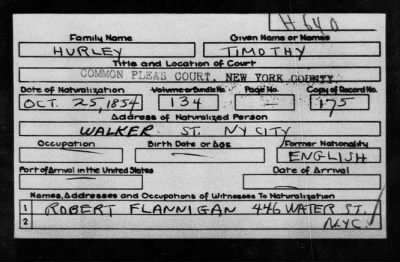 H640
Family Name Given Name or Names
HURLEY TIMOTHY
Title and Location of Court
COMMON PLEAS COURT, NEW YORK COUNTY
Date of Naturalization Volume or Bundle No. Page No. Copy of Record No.
OCT. 25, 1854 134 175
Address of Naturalized Person
WALKER ST. NY CITY
Occupation Birth Date or Age Former Nationality
ENGLISH
Port of Arrival in the United States Date of Arrival
Names, Addresses and Occupations of Witnesses To Naturalization
1 ROBERT FLANNIGAN 446 WATER ST.
2 N.Y.C.